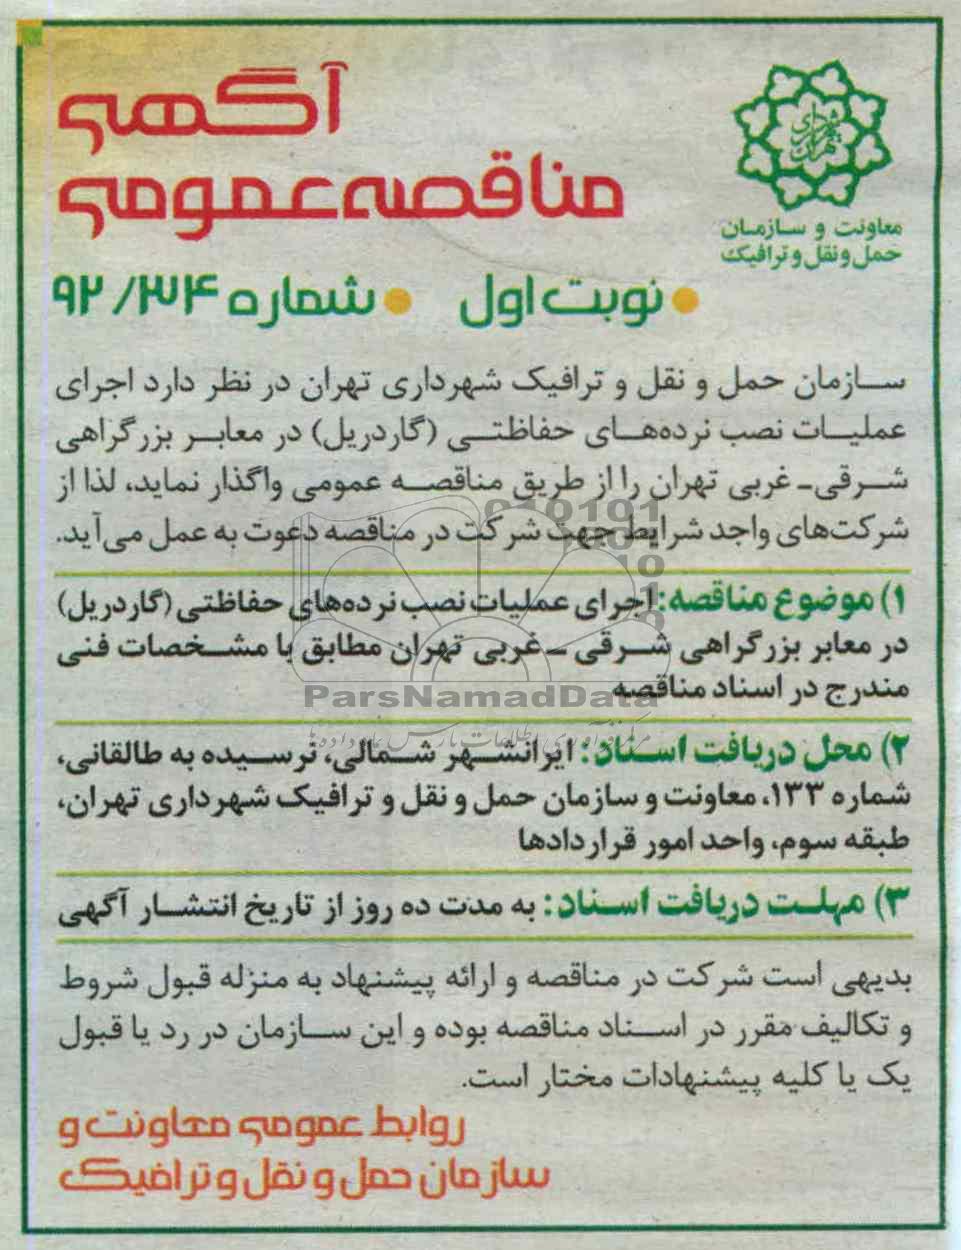 شهرداری تهران
معاونت و سازمان
حمل و نقل و ترافیک
آگهی
مناقصه عمومی
• نوبت اول • شماره ۹۲/۳۴
سازمان حمل و نقل و ترافیک شهرداری تهران در نظر دارد اجرای
عملیات نصب نرده‌های حفاظتی (گاردریل) در معابر بزرگراهی
شرقی- غربی تهران را از طریق مناقصه عمومی واگذار نماید، لذا از
شرکت‌های واجد شرایط جهت شرکت در مناقصه دعوت به عمل می‌آید.
۱) موضوع مناقصه: اجرای عملیات نصب نرده‌های حفاظتی (گاردریل)
در معابر بزرگراهی شرقی - غربی تهران مطابق با مشخصات فنی
مندرج در اسناد مناقصه
ParsNamadData
مرکز فرآوری اطلاعات پارس نماد داده‌ها
۲) محل دریافت اسناد: ایرانشهر شمالی، نرسیده به طالقانی،
شماره ۱۳۳، معاونت و سازمان حمل و نقل و ترافیک شهرداری تهران،
طبقه سوم، واحد امور قراردادها
۳) مهلت دریافت اسناد: به مدت ده روز از تاریخ انتشار آگهی
بدیهی است شرکت در مناقصه و ارائه پیشنهاد به منزله قبول شروط
و تکالیف مقرر در اسناد مناقصه بوده و این سازمان در رد یا قبول
یک یا کلیه پیشنهادات مختار است.
روابط عمومی معاونت و
سازمان حمل و نقل و ترافیک